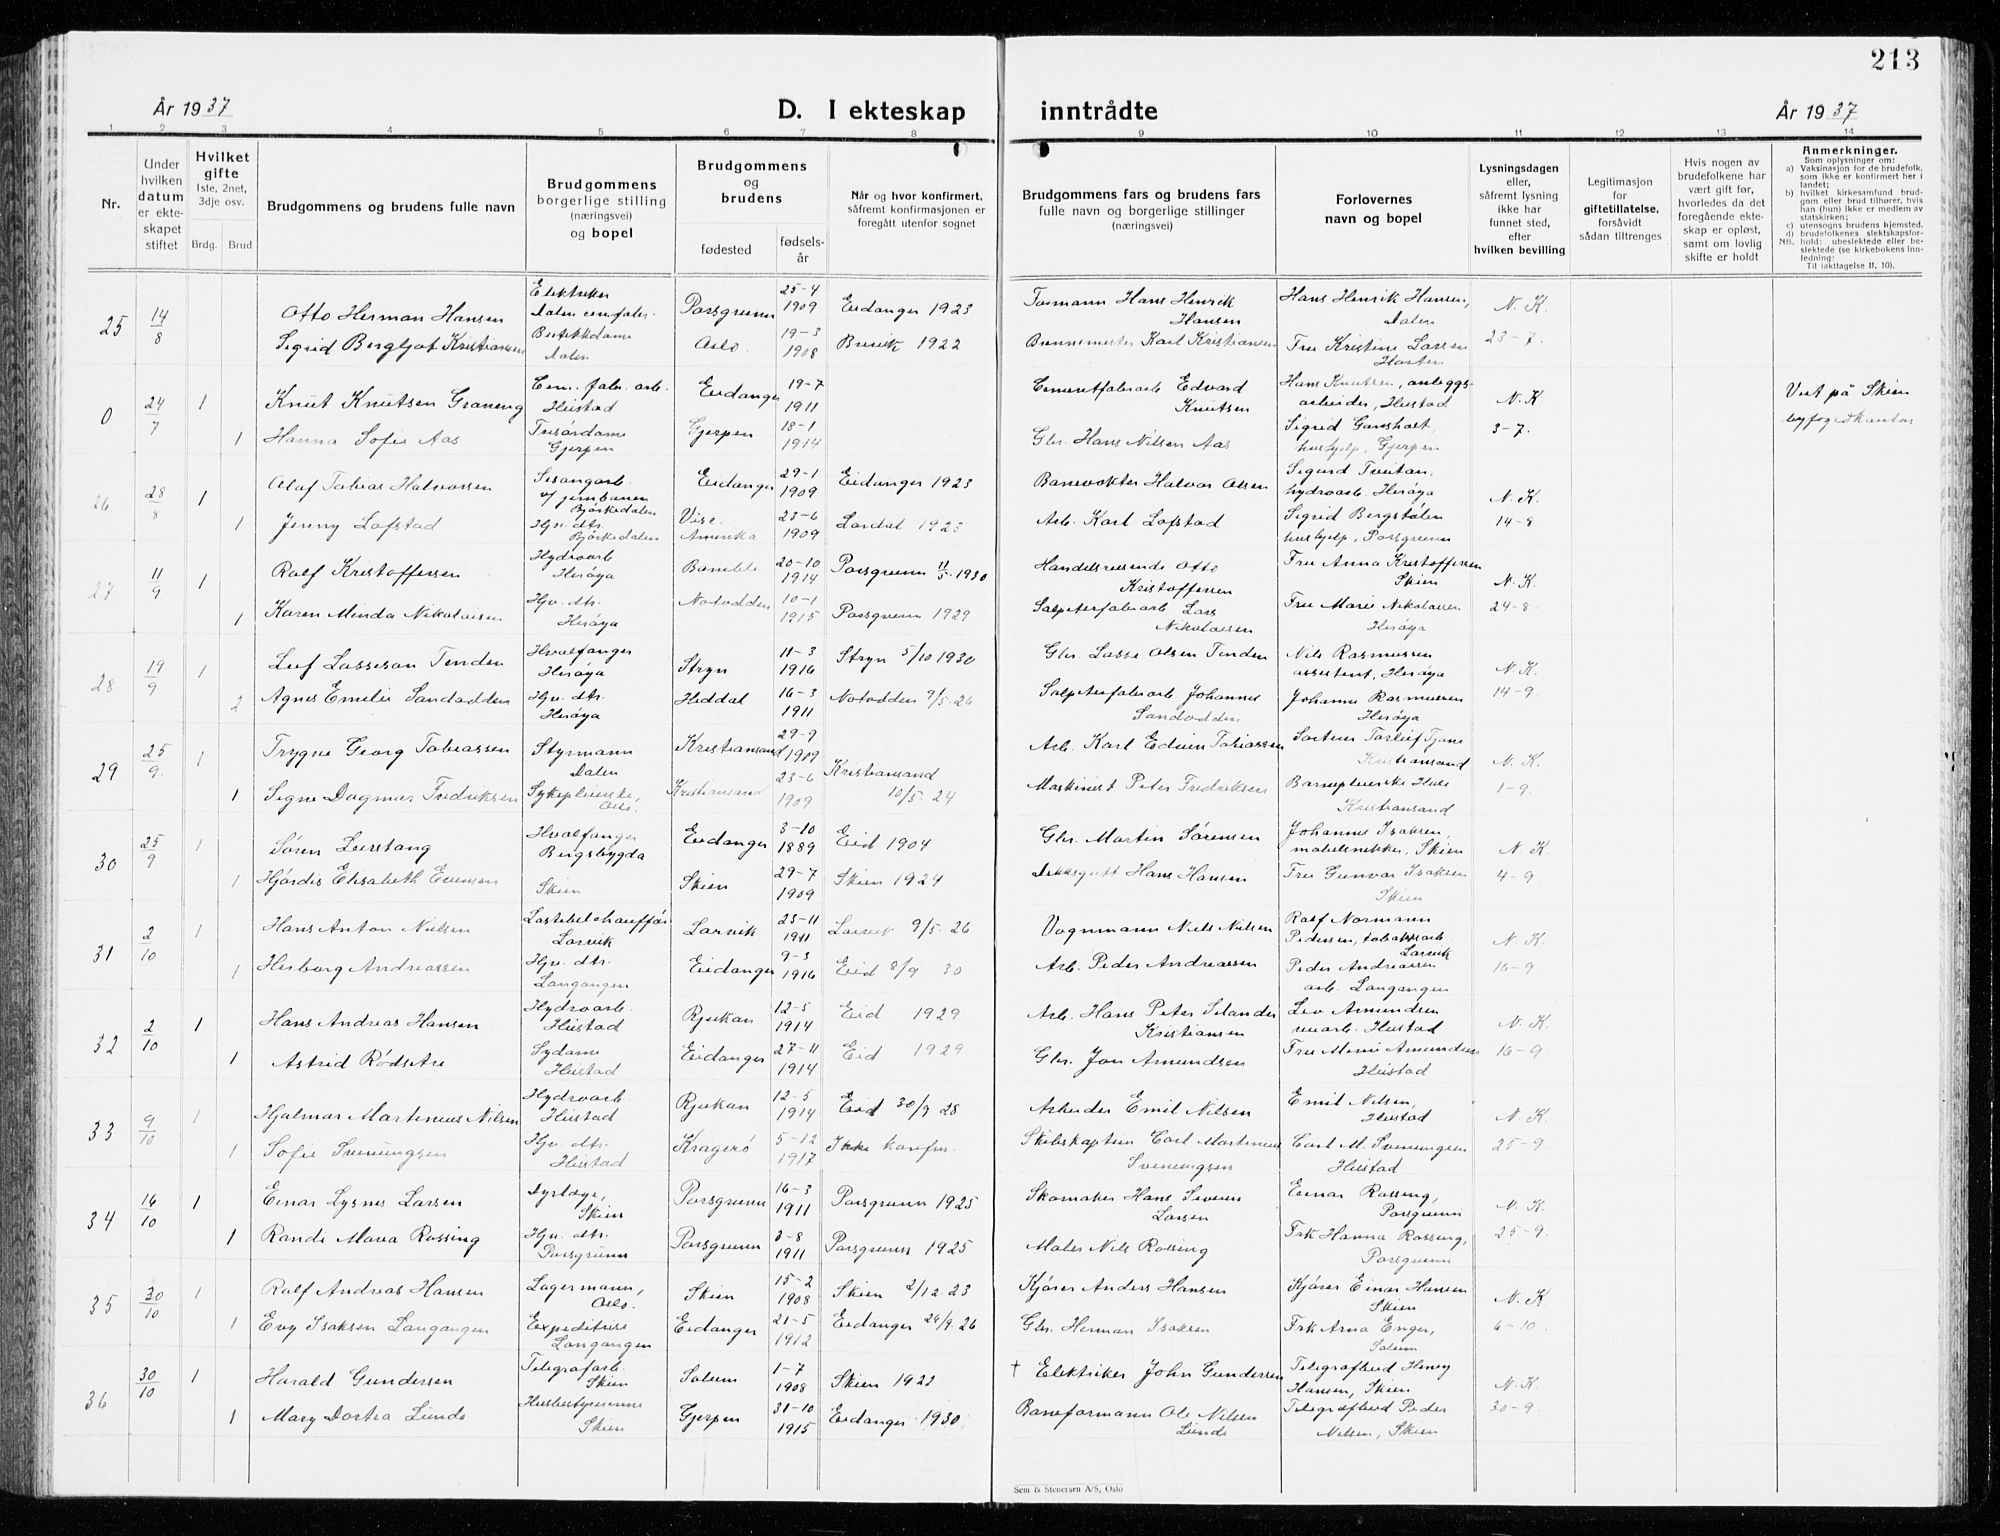 213
År 1937
D. I ekteskap inntrådte
År 1937
1 2 3 4 5 6 7 8 9 10 11 12 13 14
Nr.
Under hvilken datum er ekteskapet stiftet
Hvilket gifte
1ste, 2net, 3dje osv.
Brdg. Brud
Brudgommens og brudens fulle navn
Brudgommens borgerlige stilling (næringsvei) og bopel
Brudgommens og brudens
fødested
fødselsår
Når og hvor konfirmert, såfremt konfirmasjonen er foregått utenfor sognet
Brudgommens fars og brudens fars fulle navn og borgerlige stillinger (næringsvei)
Forlovernes navn og bopel
Lysningsdagen eller, såfremt lysning ikke har funnet sted, efter hvilken bevilling
Legitimasjon for giftetillatelse, forsåvidt sådan tiltrenges
Hvis nogen av brudefolkene har vært gift før, hvorledes da det foregående ekteskap er opløst, samt om lovlig skifte er holdt
Anmerkninger.
Som oplysninger om:
a) Vaksinasjon for de brudefolk, som ikke er konfirmert her i landet;
b) hvilket kirkesamfund brudgom eller brud tilhører, hvis han (hun) ikke er medlem av statskirken;
c) utensogns brudens hjemsted.
d) brudefolkenes slektskapsforhold: ubeslektede eller beslektede (se kirkebokens innledning:
NB. Til iakttagelse 11, 10).
25 14/8 Otto Herman Hansen Elektriker Dalen Porsgrunn 25-4 1909 Eidanger 1923 Formann Hans Henrik Hansen Hans Henrik Hansen, Dalen N. K.
Sigrid Bergljot Kristiansen Dalen Oslo 19-3 1908 Brevik 1922 Karl Kristiansen Fru Kristine Larsen 23-7.
0 24/7 1 Knut Knutsen Graneng Cem. fabr. arb. Heistad Eidanger 19-7 1911 Cementfabrarb Edvard Knutsen Hans Knutsen, anleggsarbeider, Heistad N. K. Viet på Skien byfogdkontor
1 Hanna Sofie Aas Frisørdame Gjerpen Gjerpen 18-1 1914 Gbr. Hans Nilsen Aas Sigrid hushjelp, Gjerpen 3-7.
26 28/8 1 Olaf Tobias Halvorsen Sesongarb. v/ jernbanen Bjørkedalen Eidanger 29-1 1909 Eidanger 1923 Banevokter Halvor Olsen Sigurd Tveitan, hydroarb. Herøya N. K.
1 Jenny Lofstad Hjv. dtr. Bjørkedalen Amerika 23-6 1909 Lardal 1923 Arb. Karl Lofstad Sigrid Bergstølen hushjelp, Porsgrunn 14-8
27 11/9 1 Ralf Kristoffersen Hydroarb Herøya Bamble 20-10 1914 Porsgrunn 11/5 1930 Handelsreisende Otto Kristoffersen Fru Anna Kristoffersen Skien N. K.
1 Karen Minda Nikolaisen Hjv. dtr. Herøya Notodden 10-1 1915 Porsgrunn 1929 Salpeterfabrarb Lars Nikolaisen Fru Marie Nikolaisen Herøya 24-8
28 19/9 1 Leif Lassesøn Tenden Hvalfanger Herøya Stryn 11-3 1916 Stryn 5/10 1930 Gbr. Lasse Olsen Tenden Nils Rasmussen assistent, Herøya N. K.
2 Agnes Emelie Sandodden Hjv. dtr. Herøya Heddal 16-3 1911 Notodden 9/5. 26 Salpeterfabrarb Johannes Sandodden Johanne Rasmussen Herøya 14-9.
29 25/9. 1 Trygve Georg Tobiassen Styrmann Dalen Kristiansand 29-9 1909 Arb. Karl Edvin Tobiassen Kristiansand N. K.
1 Signe Dagmar Fredriksen Sykepleierske, Oslo. Kristiansand 23-6 1909 Kristiansand 10/5. 24 Maskinist Peter Fredriksen Barnepleierske Kristiansand 1-9.
30 25/9 1 Søren Leerstang Hvalfanger Bergsbygda Eidanger 3-10 1889 Eid 1904 Gbr. Martin Sørensen Johannes Isaksen, møbelsnekker, Skien N. K.
1 Hjørdis Elisabeth Evensen Skien Skien 29-7 1909 Skien 1924 Dekksgutt Hans Hansen Fru Gunvor Isaksen Skien 4-9.
31 2/10 1 Hans Anton Nielsen Lastebilchauffør Larvik Larvik 23-11 1911 Larvik 9/5. 26 Vognmann Niels Nielsen Ralf Normann Pedersen, tobakksarb. Larvik N. K.
1 Herborg Andreassen Hjv. dtr. Langangen Eidanger 9-3 1916 Eid 8/9 30 Arb. Peder Andreassen Peder Andreassen arb. Langangen 16-9
32 2/10 1 Hans Andreas Hansen Hydroarb. Heistad Rjukan 12-5 1914 Eid 1929 Arb. Hans Peter Selander Kristiansen Leo Amundsen Heistad N. K.
1 Astrid Rødsåre Sydame Heistad Eidanger 27-11 1914 Eid 1929 Gbr. Jon Amundsen Fru Mimi Amundsen Heistad 16-9.
33 9/10 1 Hjalmar Martinius Nilsen Hydroarb. Heistad Rjukan 12-5 1914 Eid 30/9 28 Arbeider Emil Nilsen Emil Nilsen, Heistad N. K.
1 Sofie Sveningsen Hjv. dtr. Heistad Kragerø 5-12 1917 Ikke konfm. Skibskaptein Carl Martinius Sveningsen Carl M. Sveningsen Heistad 25-9.
34 16/10 1 Einar Lysnes Larsen Dyrlæge, Skien Porsgrunn 16-3 1911 Porsgrunn 1925 Skomaker Hans Severin Larsen Einar Rossing, Porsgrunn N. K.
1 Randi Maria Rossing Hjv. dtr. Porsgrunn Porsgrunn 3-8 1911 Porsgrunn 1925 Maler Nils Rossing Frk Hanna Rossing, Porsgrunn 25-9.
35 30/10 1 Ralf Andreas Hansen Lagermann, Oslo. Skien 15-2 1908 Skien 2/12. 23 Kjører Anders Hansen Kjører Einar Hansen Skien N. K
1 Evy Isaksen Langangen Expeditrise Langangen Eidanger 21-5 1912 Eidanger 26/9. 26 Gbr. Herman Isaksen Frk Arna Enger, Solum 6-10.
36 30/10 1 Harald Gundersen Telegrafarb. Skien Solum 1-7 1908 Skien 1922 † Elektriker John Gundersen Telegrafarbeid Henry Hansen, Skien N. K.
1 Mary Dortea Lunde Husbestyrerinne Skien Gjerpen 31-10 1915 Eidanger 1930. Baneformann Ole Nilsen Lunde Telegrafarbeid Peder Nilsen, Skien 30-9.
Sem & Stenersen A/S, Oslo